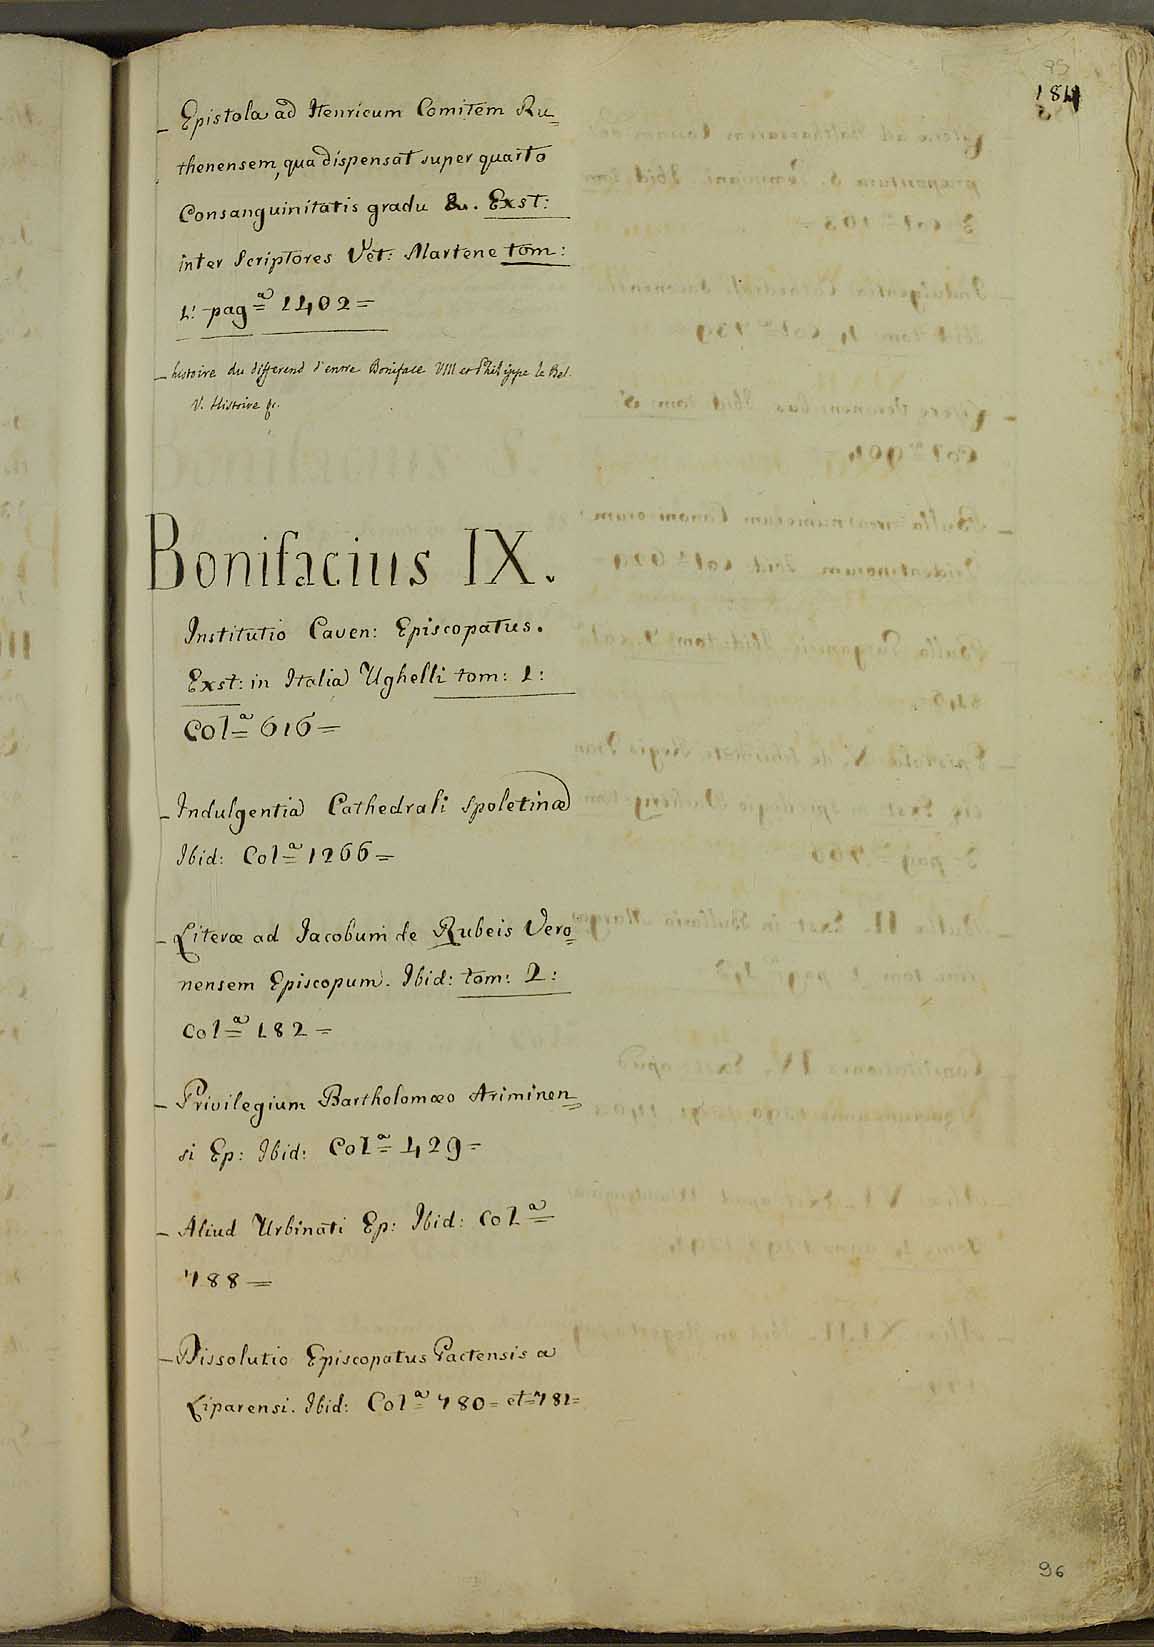 95
184
– Epistola ad Henricum Comitem Ru=
thenensem, qua dispensat super quarto
Consanguinitatis gradu &c. Exst:
inter Scriptores Vet: Martene tom:
1: pag.ª 1402=
– histoire du differend d'entre Boniface VIII et Philippe le Bel.
V. Histoire &c.
Bonifacius IX.
Institutio Caven: Episcopatus.
Exst: in Italia Ughelli tom: 1:
Col.ª 616=
– Indulgentia Cathedrali Spoletinæ
Ibid: Col.ª 1266=
– Literæ ad Jacobum de Rubeis Vero=
nensem Episcopum. Ibid: tom: 2:
Col.ª 182=
– Privilegium Bartholomæo Ariminen=
si Ep: Ibid: Col.ª 429=
– Aliud Urbinati Ep: Ibid: Col.ª
788=
– Dissolutio Episcopatus Pactensis a
Liparensi. Ibid: Col.ª 780= et=781=
96